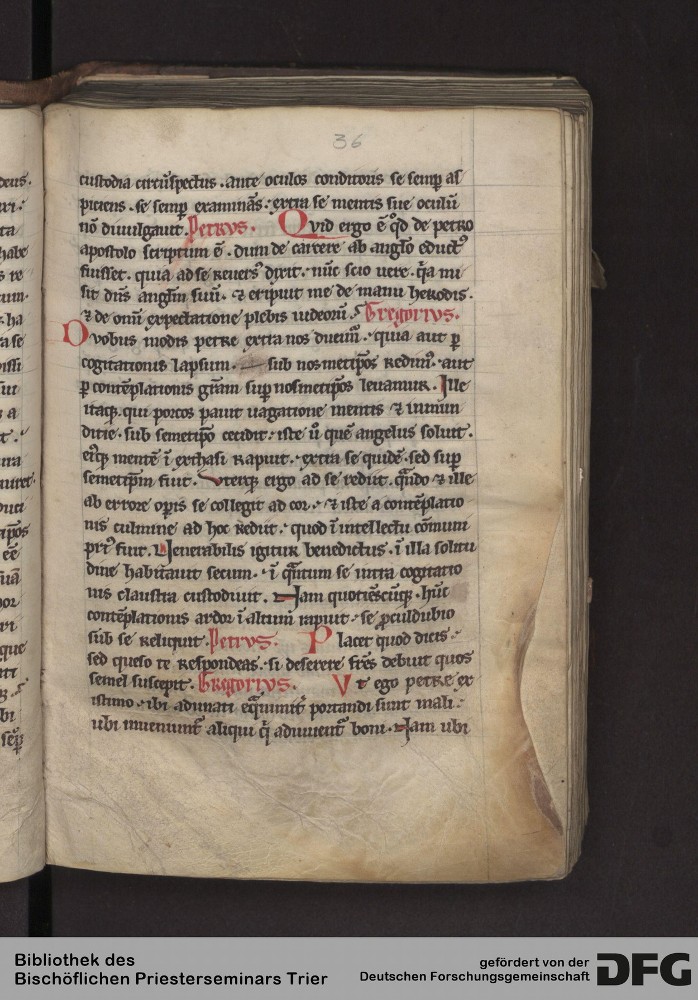 36
custodia circūspectus . ante oculos conditoris se semp as
piciens . se semp examinās . extra se mentis sue oculū
nō diuulgauit . Petrus . Quid ergo ē qd de petro
apostolo scriptum ē . dum de carcere ab anglo eductꝰ
fuisset . quia ad se reuersꝰ dixit . nūc scio uere . q̄a mi
sit dn̄s anglm̄ suū . ⁊ eripuit me de manu herodis .
⁊ de omī expectatione plebis iudeorū . Gregorius .
Duobus modis petre extra nos ducimꝰ . quia aut p
cogitationis lapsum . sub nosmetip̄os redimꝰ . aut
p contēplationis grām sup nosmetip̄os leuamur . Ille
itaqꝫ . qui porcos pauit uagatione mentis ⁊ inmun
ditie . sub semetip̄o cecidit . iste ū quē angelus soluit .
eiꝰqꝫ mentē ī exthasi rapuit . extra se quidē . sed sup
semetip̄m fuit . Uterqꝫ ergo ad se rediit . q̄ndo ⁊ ille
ab errore opis se collegit ad cor . ⁊ iste a contēplatio
nis culmine ad hoc rediit . quod ī intellectu cōmuni
priꝰ fuit . Uenerabilis igitur benedictus . ī illa solitu
dine habitauit secum . ī q̄ntum se intra cogitatio
nis claustra custodiuit . Nam quotiēscūqꝫ . hūc
contēplationis ardor ī altum rapuit . se pculdubio
sub se reliquit . Petrus . Placet quod dicis .
sed queso te respondeas . si deserere frēs debuit quos
semel suscepit . Gregorius . Ut ego petre ex
istimo . ibi adunati equanimit portandi sunt mali .
ubi inueniuntꝰ aliqui q̄ adiuuentꝰ boni . Nam ubi
Bibliothek des
Bischöflichen Priesterseminars Trier
gefördert von der
Deutschen Forschungsgemeinschaft
DFG